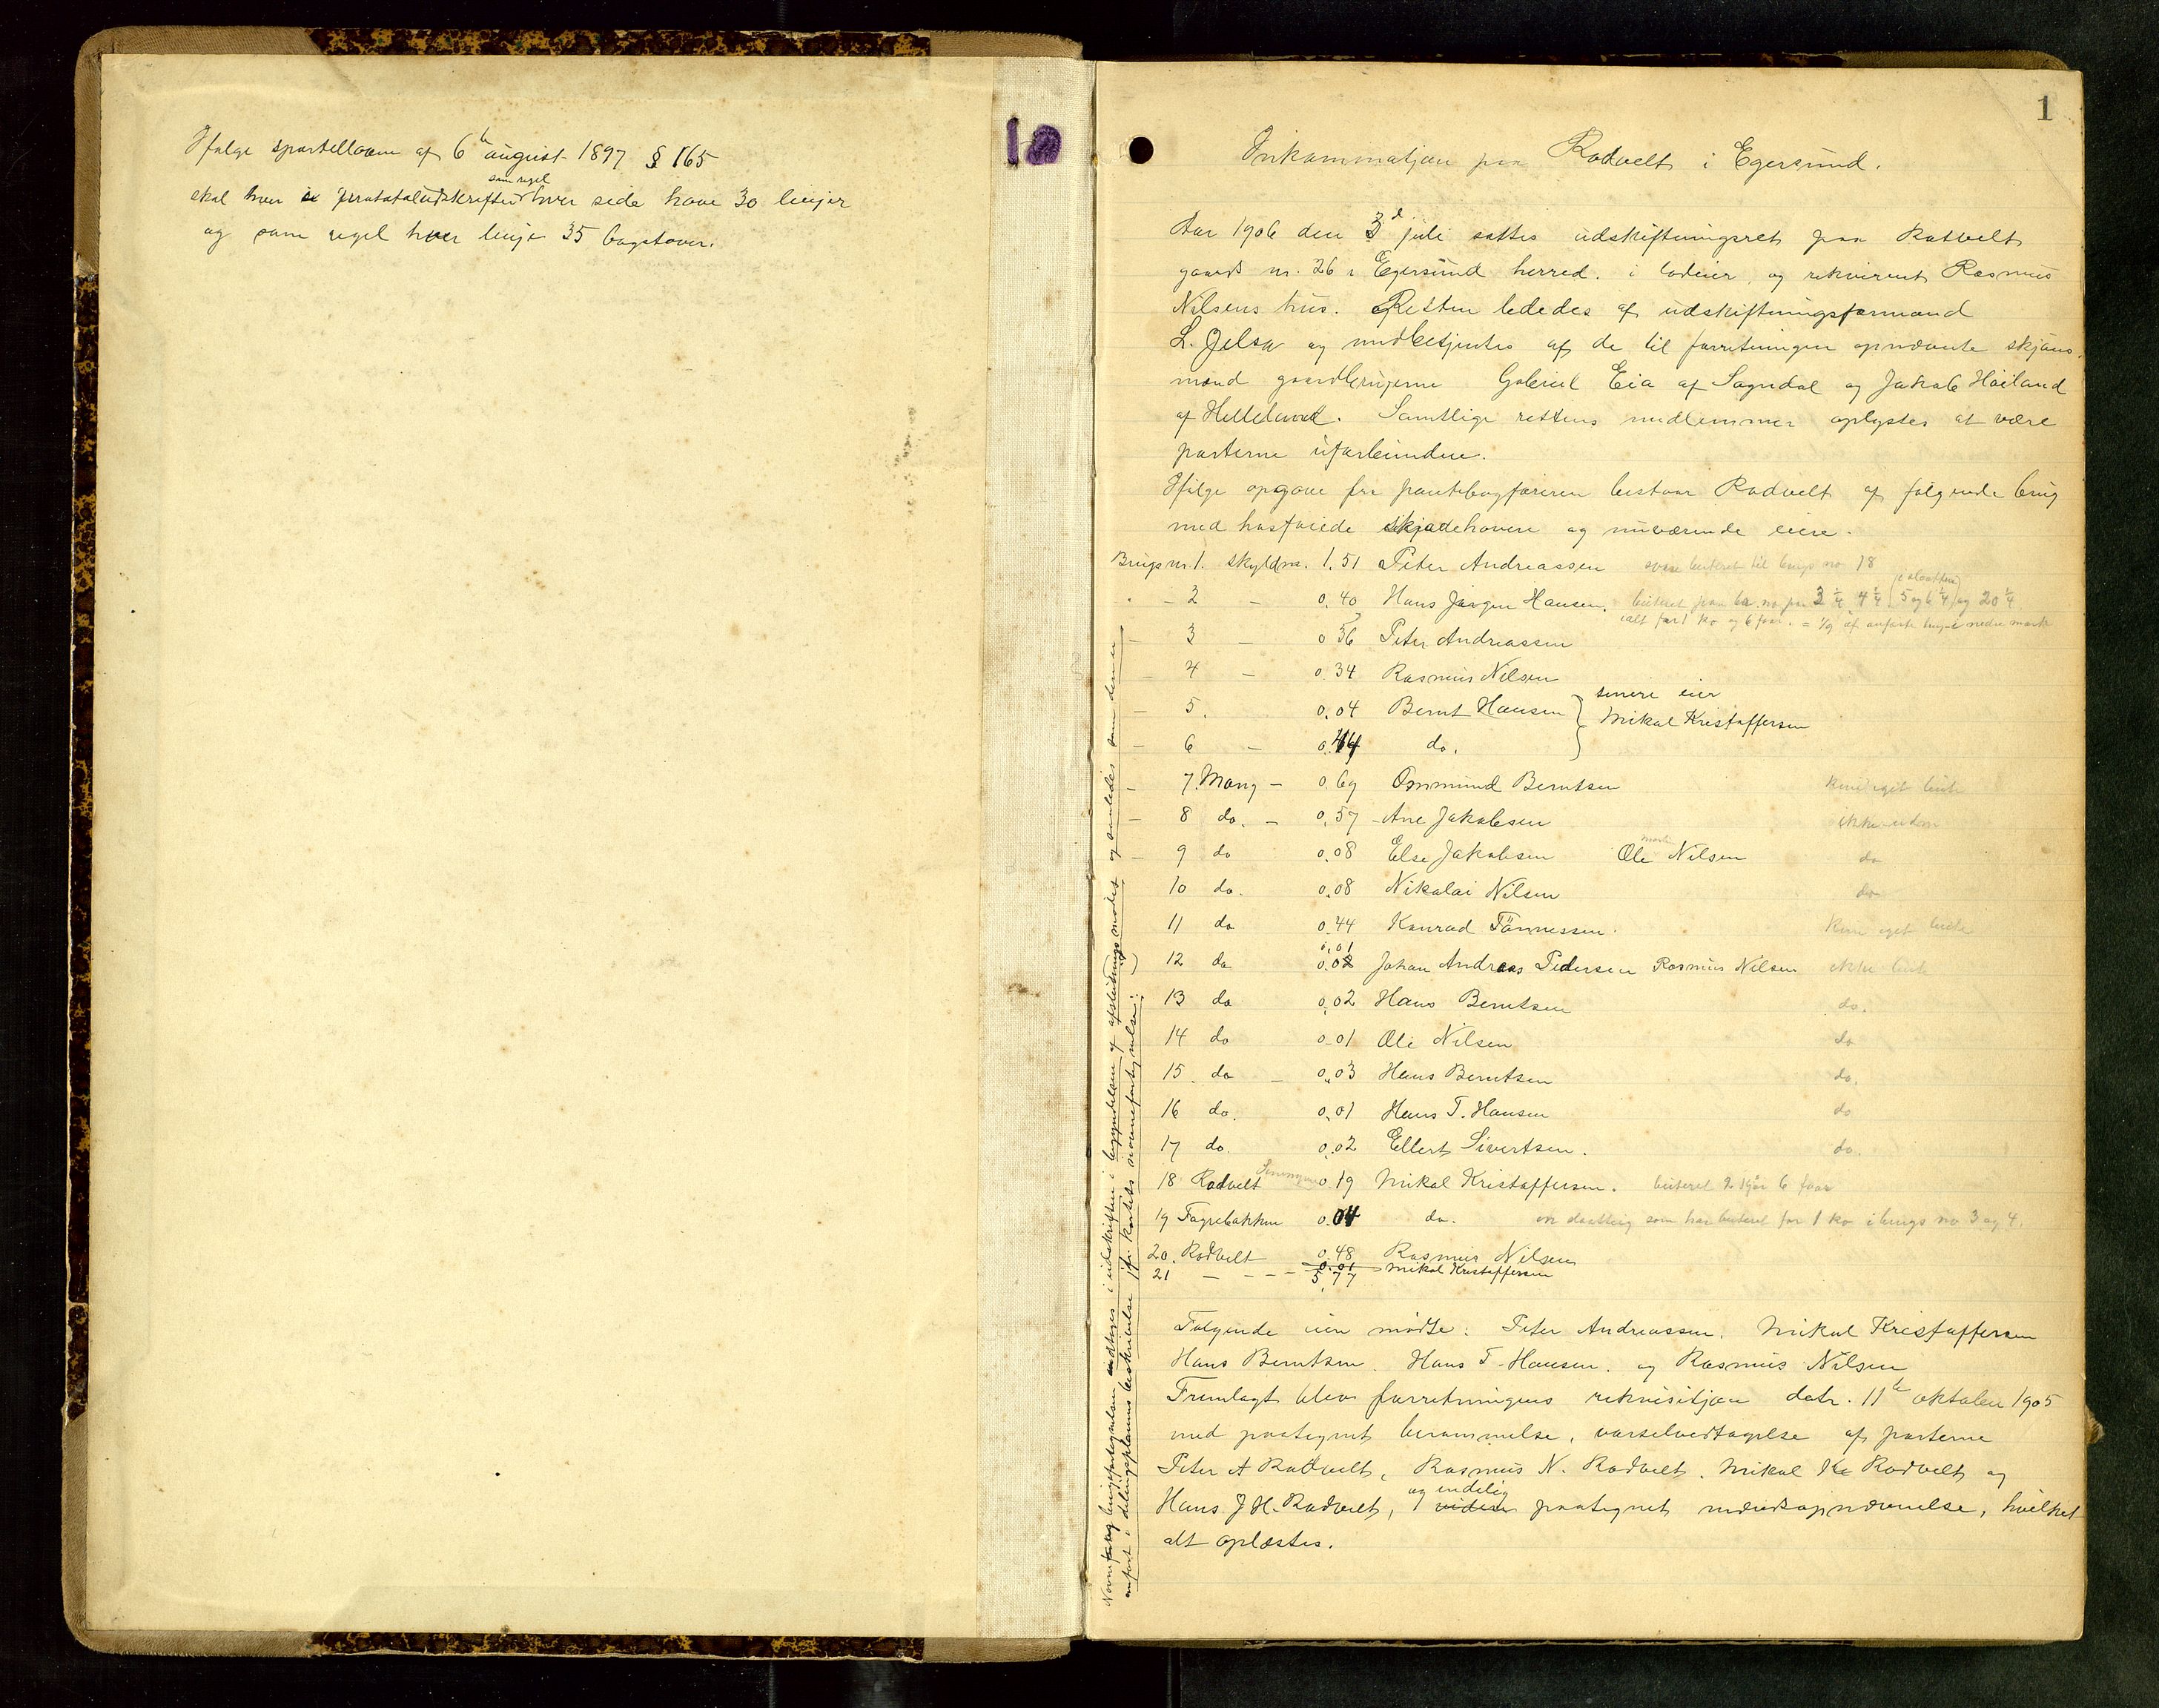 Ifølge sportelloven af 6te august 1897 § 165
som regel
skal hver protokoludskrifter hver side have 30 linjer
og som regel hver linje 35 bogstaver.
10
1
Rodvelt i Egersund.
Aar 1906 den 3d juli sattes udskiftningsret paa Rodvelt
gaards nr. 26 i Egersund herred. i lodeier og rekvirent Rasmus
Nilsens hus. Retten lededes af udskiftningsformand
L. Jelsa og medbetjentes af de til forretningen opnævnte skjøns-
mænd gaardbrugerne Gabriel Eia af Sogndal og Jakob Høiland
af Helleland. Samtlige rettens medlemmer oplystes at være
parterne uforbundne.
Ifølge opgave fra pantebogføreren bestaar Rodvelt af følgende brug
med hosføiede skjødehavere og nuværende eiere.
Brugs nr. 1. skyldm. 1.51 Peter Andreassen beiteret til brugs no 18
2 — 0.40 Hans Jørgen Hansen. 3 1/4 4 1/4 5 og 6 1/4 og 20 1/4
for 1 ko og 6 faar. = 1/9 af
— 3 — 0 56 Peter Andreassen
— 4 — 0.34 Rasmus Nilsen
— 5. 0.04 Bernt Hansen } senere eier Mikal Kristoffersen
— 6 — 0.44 do.
— 7. Mong — 0.69 Ommund Berntsen kun eget beite
— 8 do. — 0.57 Ane Jakobsen
— 9 do 0.08 Else Jakobsen Ole Nilsen do
10 do. 0.08 Nikolai Nilsen do
11 do 0.44 Konrad Tønnessen. kun eget beite
0.01
12 do 0.02 Johan Andreas Pedersen Rasmus Nilsen ikke beite
13 do 0.02 Hans Berntsen do.
14 do 0.01 Ole Nilsen do
15. do — 0.03 Hans Berntsen do.
16 do. 0.01 Hans T. Hansen do
17 do. 0.02 Ellert Sivertsen. do.
18 Rodvelt 0.19 Mikal Kristoffersen. beiteret 6 faar
19 Fagrebakken 0.04 do. som har beiteret for 1 ko i brugs no 3 og 4.
20. Rodvelt 0.48 Rasmus Nilsen
21 — - - - 0.01 Mikal Kristoffersen
5,77
Følgende eiere mødte: Peter Andreassen. Mikal Kristoffersen
Hans Berntsen. Hans T. Hansen. og Rasmus Nilsen
Fremlagt blev forretningens rekvisitjon datr. 11te oktober 1905
med paategnet berammelse, varselvedtagelse af parterne
Peter A Rodvelt, Rasmus N. Rodvelt. Mikal K Rodvelt og
og endelig
Hans J H. Rodvelt, paategnet mændsopnævnelse, hvilket
alt oplæstes.